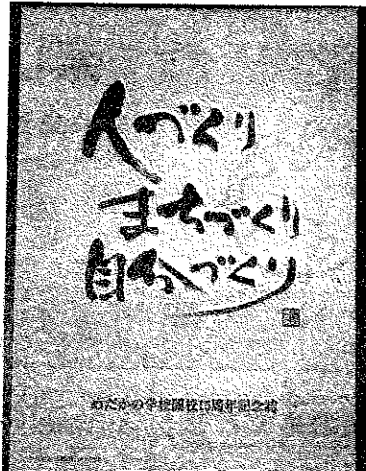 人づくり
まちづくり
自分づくり
めだかの学校開校15周年記念誌